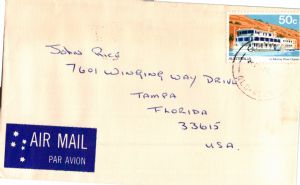 50c
AUSTRALIA
John Rice
7601 WINGING WAY DRIVE
TAMPA
FLORIDA
33615
U.S.A.
AIR MAIL
PAR AVION